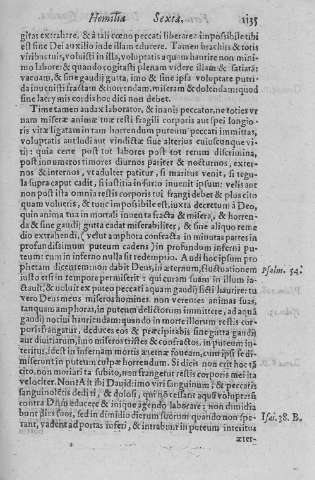 Homilia Sexta. 1135
gitas extrahere, & à tali cœno peccati liberare? impossibile tibi
est sine Dei auxilio inde illam educere. Tamen brachiis & totis
viribus tuis, voluisti in illa, voluptatis aquam haurire non mini-
mo labore: & quando cogitasti plenam videre illam & satiarâ:
vacuam, & sine gaudij gutta, imo & sine ipsa voluptate putri-
da invenisti fractam & horrendam, miseram & dolendam: quod
sine lacrymis cordis hoc dici non debet.
Time tamen audax laborator, & inanis peccator, ne toties ur
nam miseræ animæ tuæ resti fragili corporis aut spei longio-
ris vitæ ligatam in tam horrendum puteum peccati immittas,
voluptatis aut ludi aut vindictæ sive alterius cuiuscunque vi-
tij: quia certe post tot labores post tot rerum discrimina,
post innumeros timores diurnos pariter & nocturnos, exter-
nos & internos, ut adulter patitur, si maritus venit, si tegu-
la supra caput cadit, si iustitia in furto invenit ipsum: velis aut
non post ista omnia restis corporis tui frangi debet & plus cito
quam volueris, & tunc impossibile est, iuxta decretum à Deo,
quin anima tua in mortali inventa fracta & misera, & horren-
da & sine gaudij gutta cadat miserabiliter, & sine aliquo reme
dio extrahendi, (velut amphora confracta in minutas partes in
profundissimum puteum cadens) in profundum inferni pu-
teum: cum in inferno nulla sit redemptio. Audi hoc ipsum pro
phetam dicentem: non dabit Deus, in æternum, fluctuationem Psalm. 54.
iusto etsi in tempore permiserit: quicquam suam in illum ia-
ctavit, & voluit ex puteo peccati aquam gaudij ficti haurire: tu
vero Deus meus miseros homines non verentes animas suas,
tanquam amphoras, in puteum delictorum immittere, ad aquã
gaudij nocivi hauriendam: quando in morte illorum restis cor
poris frangatur, deduces eos & præcipitabis sine gutta gaudij
aut divitiarum, imo miseros tristes & confractos, in puteum in-
teritus, idest in infernum mortis æternæ foveam, cum ipsi se di-
miserunt in puteum culpæ horrendum. Si dicis non erit hoc tã
cito, non moriar tã subito, non frangetur restis corporis mei ita
velociter. Non? Ait tibi David: imo viri sanguinum, & peccatis
sanguinolẽtis dediti, & dolosi, qui nõ cessant aquã voluptatis
contra Deum educere & inique agendo laborare: non dimidia
bunt dies suos, sed in dimidio dierum suorum quando non spe- Isai. 38. B.
rant, vadent ad portas inferi, & intrabunt in puteum interitus
æter-